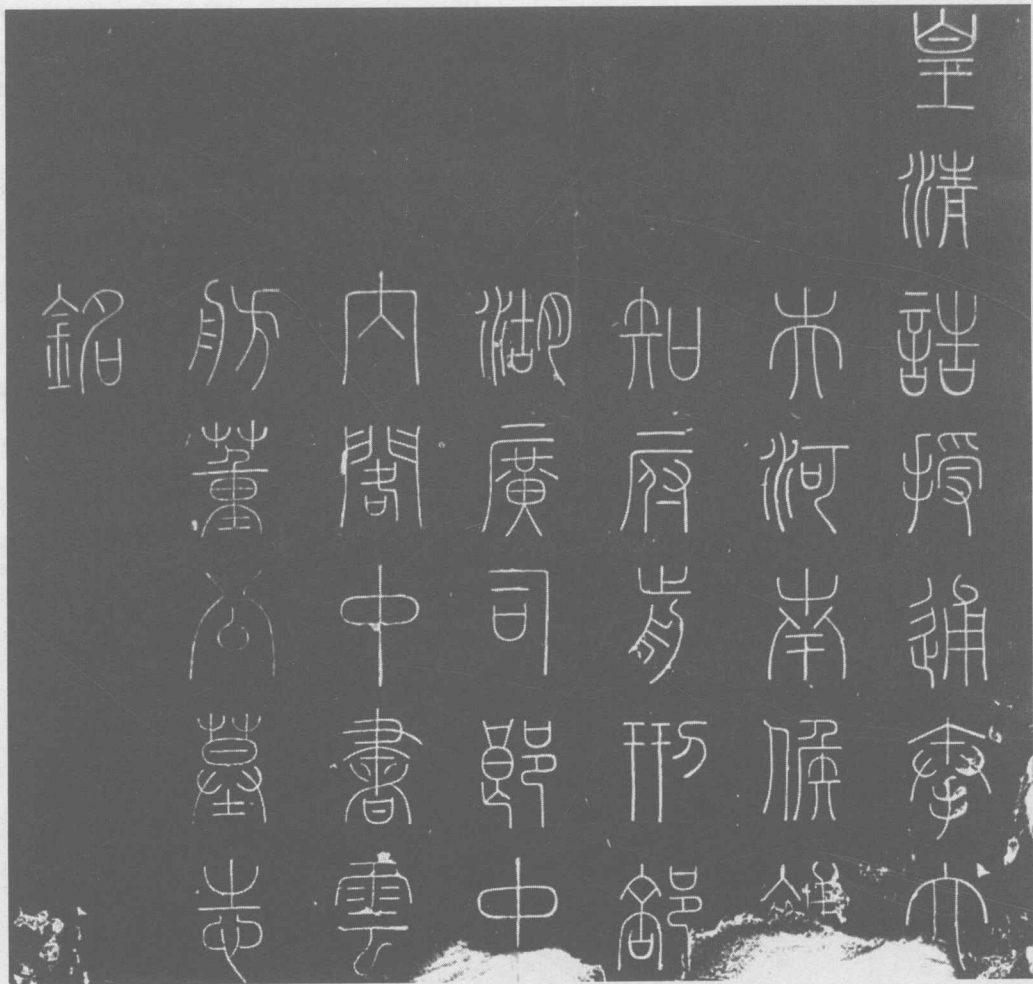 皇清誥授通奉大
夫河南候補
知府前刑部
湖廣司郎中
內閣中書雲
舫董公墓志
銘